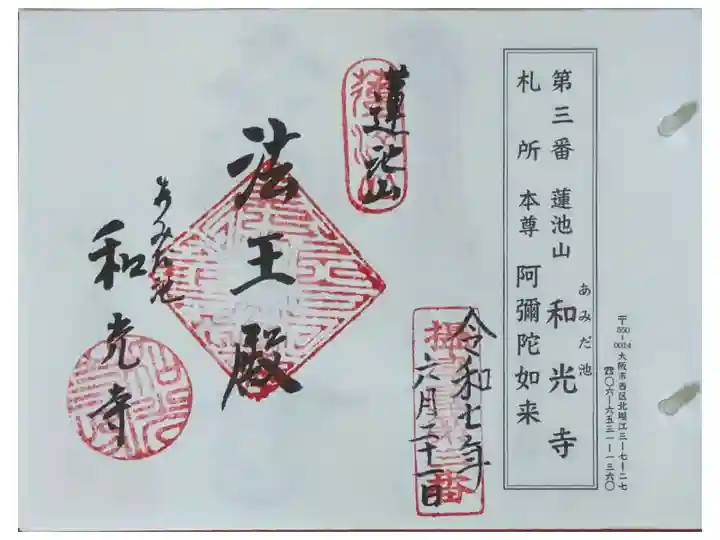 〒550-0014 大阪市西区北堀江三-七-二七
☎〇六-六五三一-一三六〇
第三番 蓮池山 和光寺
あみだ池
札所 本尊 阿彌陀如来
蓮池山
令和七年
六月二十一日
法王殿
あみだ池
和光寺